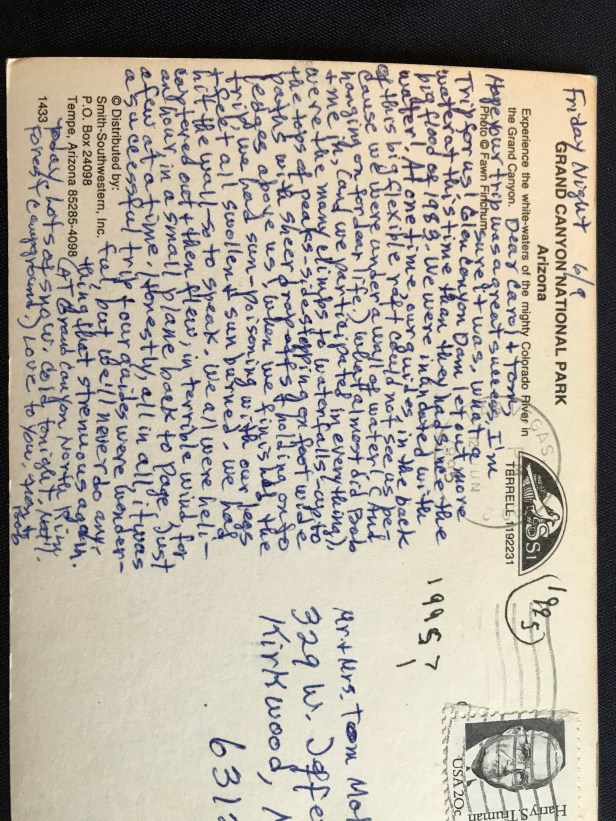 Friday Night 6/9
GRAND CANYON NATIONAL PARK
Arizona
Experience the white-waters of the mighty Colorado River in
the Grand Canyon.
Photo © Fawn Finchum
Dear Carol + Tom,
Hope your trip was a great success, I'm
sure it was. What a
Trip for us! Glen Canyon Dam let out more
water at this time than they had since the
big flood of 1983. We were inundated with
water! At one time our guides, in the back
of this big flexible raft could not see us be-
cause we were under a wall of water (And
hanging on for dear life.) What almost did Bob
+ me in, (and we participated in everything),
were the many climbs to waterfalls - up to
the tops of peaks - side stepping on foot wide
paths with sheer drop offs + holding on to
ledges above us! When we finished the
trip, we had sun-poisoning with our legs
+ feet all swollen + sunburned, we had
hit the wall - so to speak. We all were heli-
coptered out + then flew, in terrible wind for
an hour in a small plane back to Page. Just
a few at a time. Honestly, all in all, it was
a successful trip + our guides were wonder-
ful, but we'll never do any-
thing that strenuous again.
(AT Grand Canyon North Rim
today, Lots of snow. Cold tonight. Nat'l.
Forest Campground.) Love to you,
Bob
© Distributed by:
Smith-Southwestern, Inc.
P.O. Box 24098
Tempe, Arizona 85285-4098
1433
TERRELL 1192231
SSI
GAS
JUN
1995
1995?
USA 20c
Harry S. Truman
Mr. + Mrs. Tom
329 W.
Kirkwood,